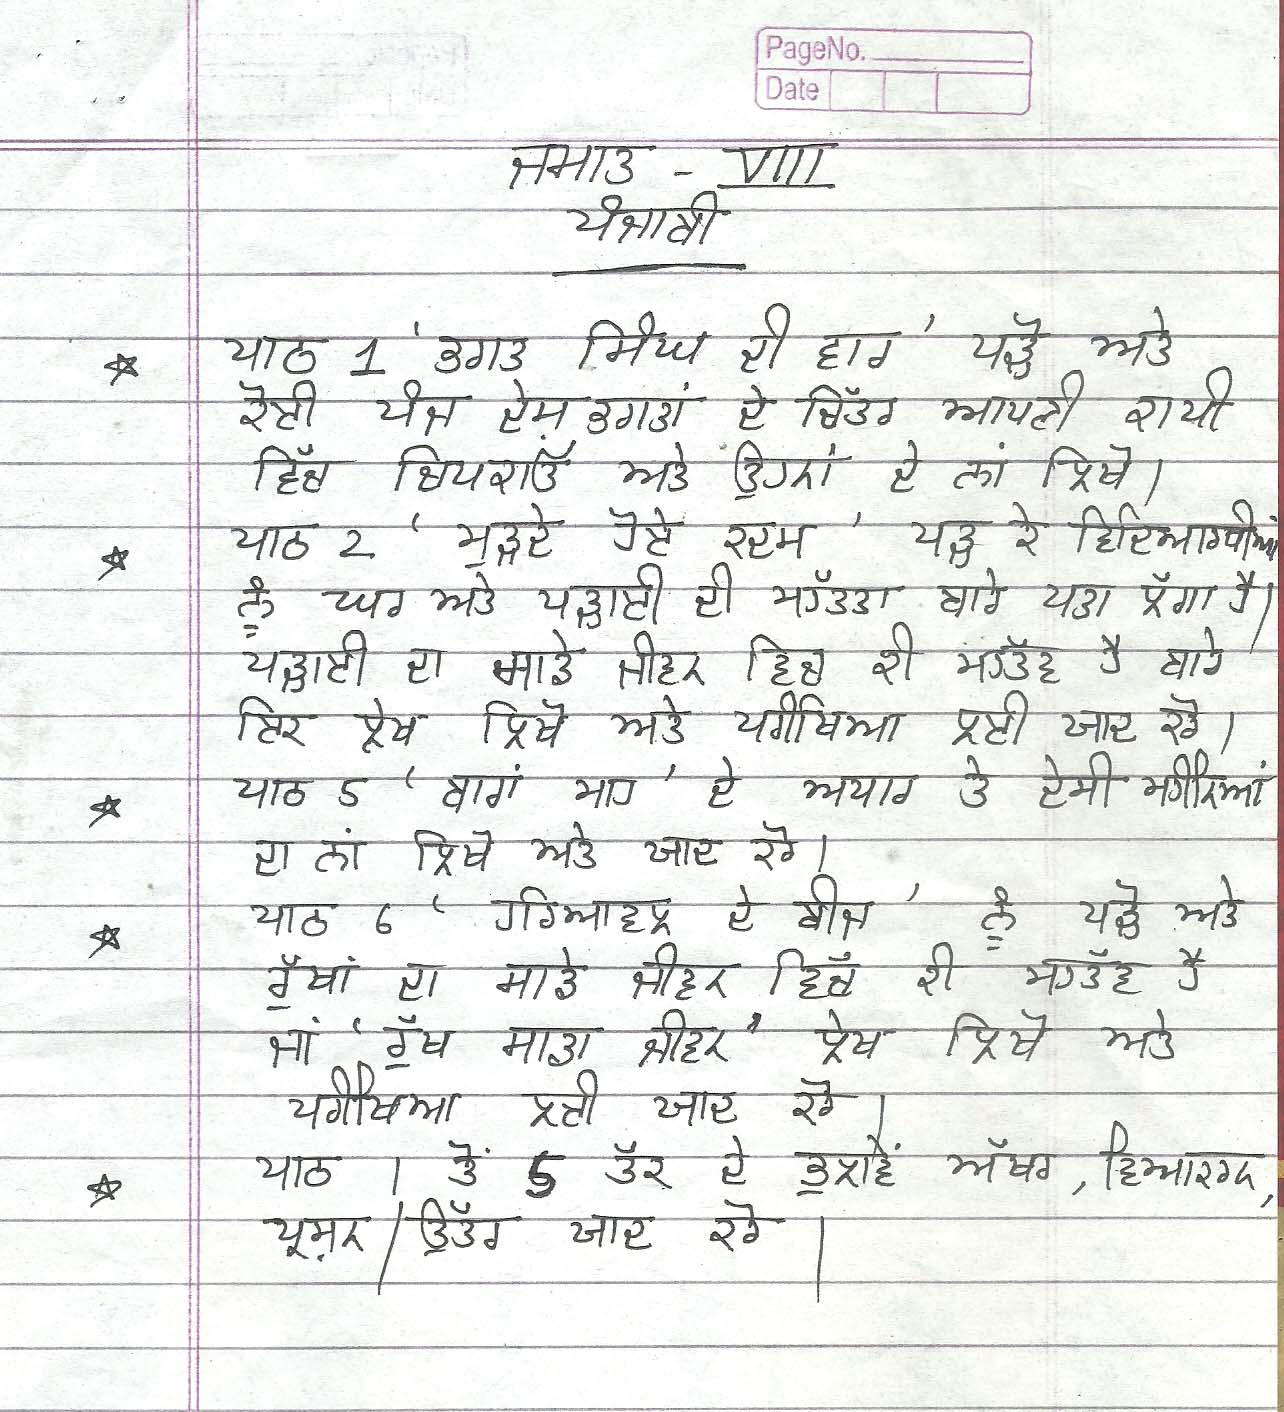 PageNo.
Date
ਜਮਾਤ - VIII
ਪੰਜਾਬੀ
ਪਾਠ 1 'ਭਗਤ ਸਿੰਘ ਦੀ ਵਾਰ' ਪੜ੍ਹੋ ਅਤੇ
ਕੋਈ ਪੰਜ ਦੇਸ਼ ਭਗਤਾਂ ਦੇ ਚਿੱਤਰ ਆਪਣੀ ਕਾਪੀ
ਵਿੱਚ ਚਿਪਕਾਉ ਅਤੇ ਉਹਨਾਂ ਦੇ ਨਾਂ ਲਿਖੋ।
ਪਾਠ 2 'ਮੁੜਦੇ ਹੋਏ ਕਦਮ' ਪੜ੍ਹ ਕੇ ਵਿਦਿਆਰਥੀਆਂ
ਨੂੰ ਘਰ ਅਤੇ ਪੜ੍ਹਾਈ ਦੀ ਮਹੱਤਤਾ ਬਾਰੇ ਪਤਾ ਲੱਗਾ ਹੈ।
ਪੜ੍ਹਾਈ ਦਾ ਸਾਡੇ ਜੀਵਨ ਵਿਚ ਕੀ ਮਹੱਤਵ ਹੈ ਬਾਰੇ
ਇਕ ਲੇਖ ਲਿਖੋ ਅਤੇ ਪਰੀਖਿਆ ਲਈ ਯਾਦ ਕਰੋ।
ਪਾਠ 5 'ਬਾਰਾਂ ਮਾਹ' ਦੇ ਅਧਾਰ ਤੇ ਦੇਸੀ ਮਹੀਨਿਆਂ
ਦਾ ਨਾਂ ਲਿਖੋ ਅਤੇ ਯਾਦ ਕਰੋ।
ਪਾਠ 6 'ਹਰਿਆਵਲ ਦੇ ਬੀਜ' ਨੂੰ ਪੜ੍ਹੋ ਅਤੇ
ਰੁੱਖਾਂ ਦਾ ਸਾਡੇ ਜੀਵਨ ਵਿੱਚ ਕੀ ਮਹੱਤਵ ਹੈ
ਜਾਂ 'ਰੁੱਖ ਸਾਡਾ ਜੀਵਨ' ਲੇਖ ਲਿਖੋ ਅਤੇ
ਪਰੀਖਿਆ ਲਈ ਯਾਦ ਕਰੋ।
ਪਾਠ 1 ਤੋਂ 5 ਤੱਕ ਦੇ ਭੁਲਾਵੇਂ ਅੱਖਰ, ਵਿਆਕਰਨ,
ਪ੍ਰਸ਼ਨ/ਉੱਤਰ ਯਾਦ ਕਰੋ।